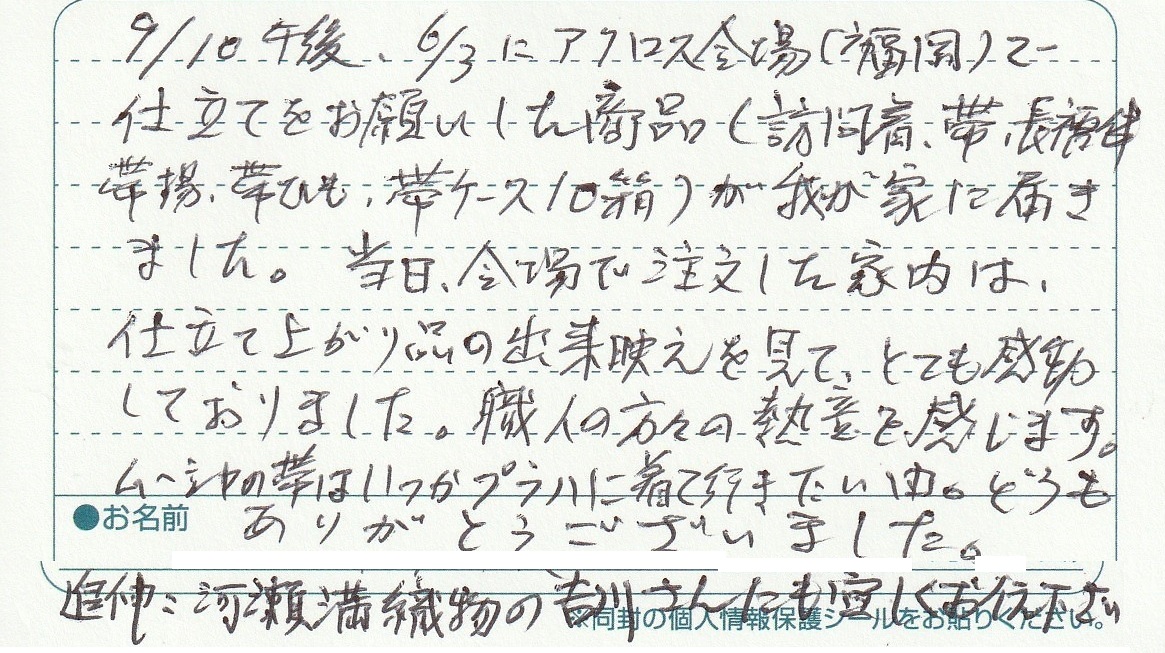 9/10午後、6/3にアクロス会場(福岡)で
仕立てをお願いした商品(訪問着、帯、長襦袢
帯揚、帯ひも、帯ケース10箱)が我が家に届き
ました。 当日、会場で注文した家内は、
仕立て上がり品の出来映えを見て、とても感動
しておりました。職人の方々の熱意を感じます。
ムハシャの帯はいつかプラハに着て行きたい由。どうも
●お名前 ありがとうございました。
追伸:河瀬満織物の吉川さんにも宜しくお伝え下さい
※同封の個人情報保護シールをお貼りください。